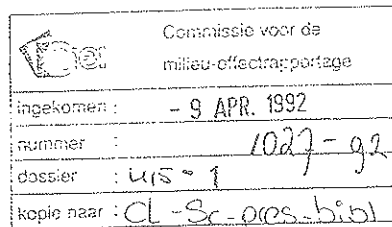 Commissie voor de
milieu-effectrapportage
ingekomen : - 9 APR. 1992
nummer : 1027-92
dossier : 415-1
kopie naar : CL-Sc-